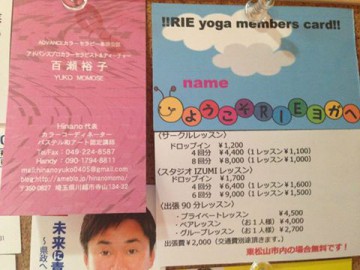 ADVANCEカラーセラピー
百瀬裕子
YUKO MOMOSE
Hinano 代表
カラーコーディネーター
パステル和アート認定講師
Tel/Fax : 049-224-8587
Handy : 090-1794-8811
mail:hinanoyuko0405@gmail.com
〒350-0827 埼玉県川越市寺山134-22
未来に責
〜県政へ
!!RIE yoga members card!!
name
ようこそRIEヨガへ
<サークルレッスン>
ドロップイン ¥1,200
4回分 ¥4,400 (1レッスン¥1,100)
8回分 ¥8,000 (1レッスン¥1,000)
<スタジオ IZUMI レッスン>
ドロップイン ¥1,700
4回分 ¥6,400 (1レッスン¥1,600)
6回分 ¥9,000 (1レッスン¥1,500)
<出張90分レッスン>
・プライベートレッスン ¥4,500
・ペアレッスン (お1人様) ¥4,000
・グループレッスン (お1人様) ¥2,700
出張費¥2,000 (交通費別途頂きます。)
東松山市内の場合無料です!